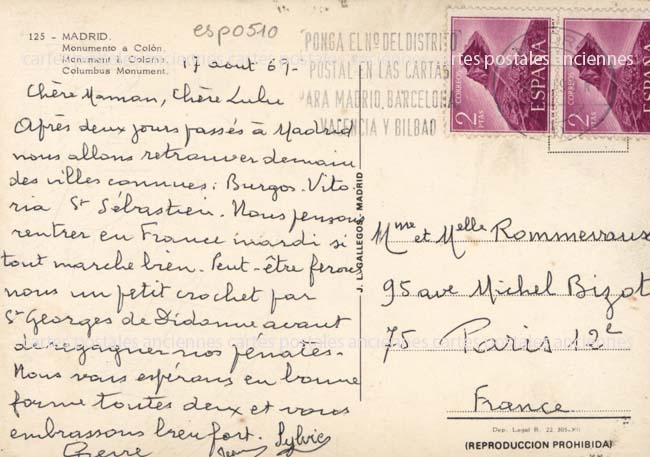 esp0510
125 - MADRID.
Monumento a Colón.
Monument à Colomb.
Columbus Monument.
17 août 67-
Chère Maman, Chère Lulu
Après deux jours passés à Madrid
nous allons retrouver demain
des villes connues : Burgos. Vito-
ria St Sébastien. Nous pensons
rentrer en France mardi si
tout marche bien. Peut-être ferons
nous un petit crochet par
St Georges de Didonne avant
de regagner nos pénates.
Nous vous espérons en bonne
forme toutes deux et vous
embrassons bien fort. Sylvie
Pierre
"PONGA EL Nº DEL DISTRITO
POSTAL EN LAS CARTAS
PARA MADRID, BARCELONA
VALENCIA Y BILBAO
CORREOS
2
PTAS
ESPAÑA
CORREOS
2
PTAS
ESPAÑA
J. L. GALLEGOS.-MADRID
Mme et Melle Rommevaux
95 ave Michel Bizot
75 Paris 12e
France
Dep. Legal B. 22 305-XII
(REPRODUCCION PROHIBIDA)
cartes postales anciennes cartes postales anciennes cartes postales anciennes
cartes postales anciennes cartes postales anciennes cartes postales anciennes